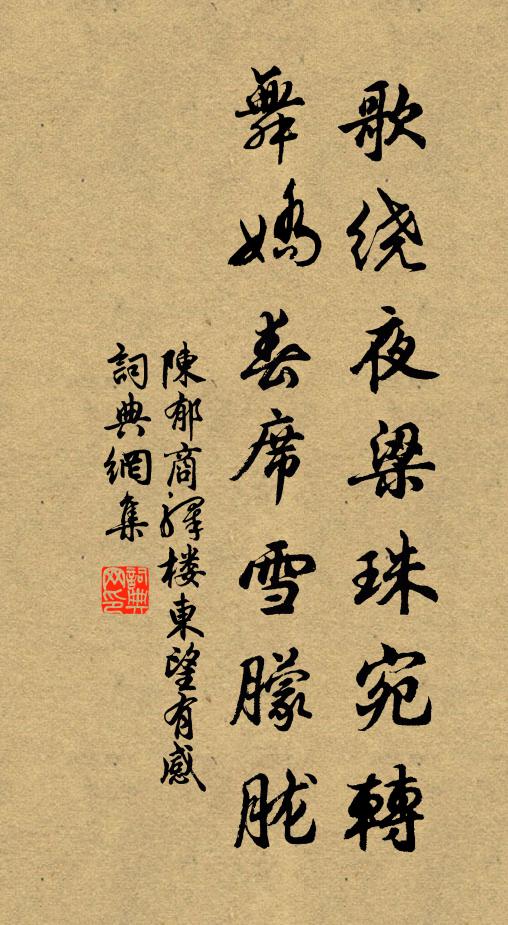 歌绕夜梁珠宛轉
舞嬌春席雪朦朧
陳郁商驛楼東望有感
詞典網集
詞典网印